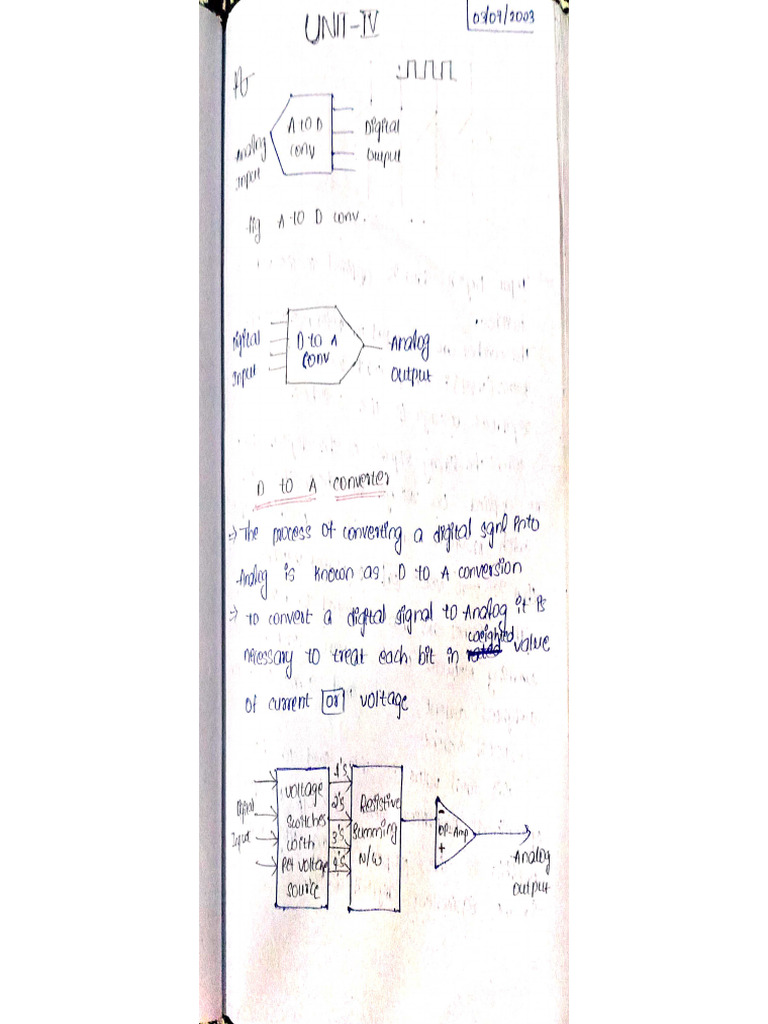 UNIT-IV
03/07/2003
A to D
conv
Analog
Input
Digital
Output
fig A to D conv.
Digital
Input
D to A
conv
Analog
output
D to A converter
⇒ The process of converting a digital signl into
Analog is known as D to A conversion
⇒ to convert a digital signal to Analog it is
necessary to treat each bit in weighted value
of current or voltage
Digital
Input
voltage
switches
with
ref voltage
source
1's
2's
3's
4's
Resistive
summing
N/W
-
OP-Amp
+
Analog
output